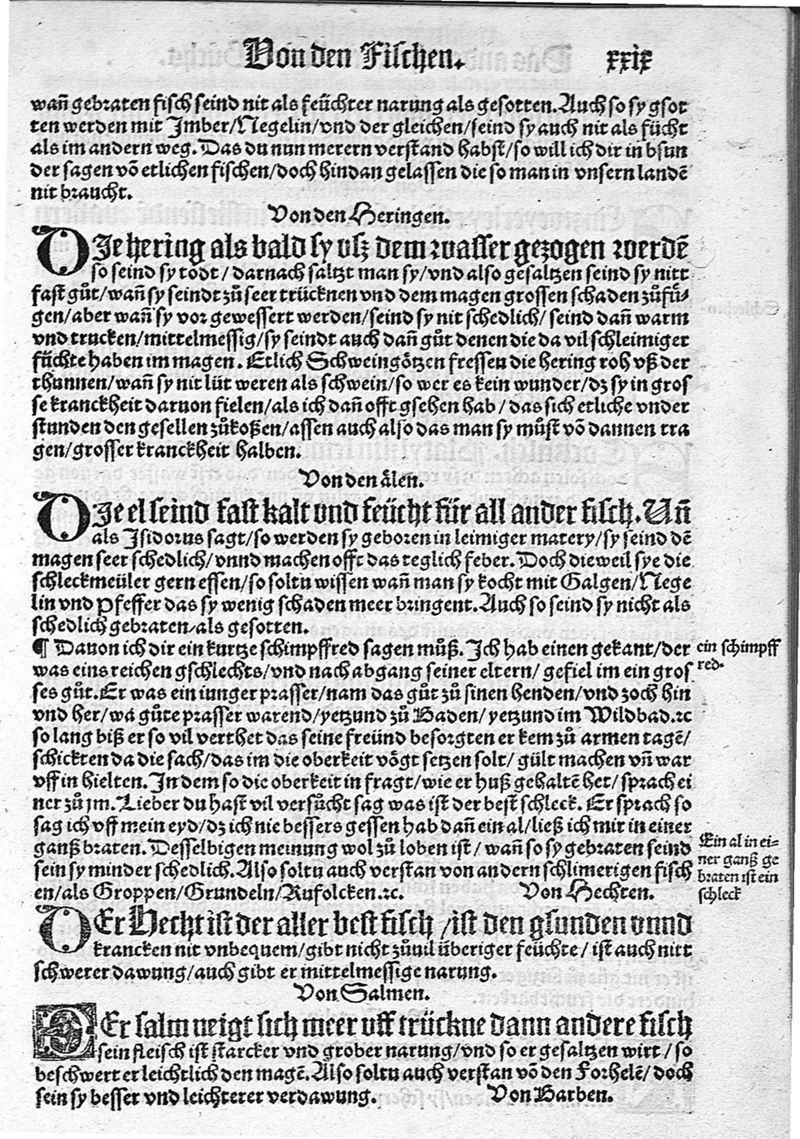 Von den Fischen. xxix
wañ gebraten fisch seind nit als feüchter narung als gesotten. Auch so sy gsot
ten werden mit Imber/Negelin/vnd der gleichen/seind sy auch nit als fücht
als im andern weg. Das du nun merern verstand habst/so will ich dir in bsun
der sagen võ etlichen fischen/doch hindan gelassen die so man in vnsern landẽ
nit braucht.
Von den Heringen.
DIe hering als bald sy vsz dem wasser gezogen werdẽ
so seind sy todt/darnach saltzt man sy/vnd also gesaltzen seind sy nitt
fast gůt/wañ sy seindt zů seer trücknen vnd dem magen grossen schaden zůfü-
gen/aber wañ sy vor gewessert werden/seind sy nit schedlich/seind dañ warm
vnd trucken/mittelmessig/sy seindt auch dañ gůt denen die da vil schleimiger
füchte haben im magen. Etlich Schweingötzen fressen die hering roh vß der
thunnen/wañ sy nit lüt weren als schwein/so wer es kein wunder/dz sy in gros
se kranckheit daruon fielen/als ich dañ offt gsehen hab/das sich etliche vnder
stunden den gesellen zůkoßen/assen auch also das man sy můst võ dannen tra
gen/grosser kranckheit halben.
Von den älen.
DIe el seind fast kalt vnd feücht für all ander fisch. Uñ
als Isidorus sagt/so werden sy geboren in leimiger matery/sy seind dẽ
magen seer schedlich/vnnd machen offt das teglich feber. Doch dieweil sye die
schleckmeüler gern essen/so soltu wissen wañ man sy kocht mit Galgen/Nege
lin vnd Pfeffer das sy wenig schaden meer bringent. Auch so seind sy nicht als
schedlich gebraten/als gesotten.
¶ Dauon ich dir ein kurtze schimpffred sagen můß. Ich hab einen gekant/der
ein schimpff
red.
was eins reichen gschlechts/vnd nach abgang seiner eltern/gefiel im ein gros
ses gůt. Er was ein iunger prasser/nam das gůt zů sinen henden/vnd zoch hin
vnd her/wa gůte prasser warend/yetzund zů Baden/yetzund im Wildbad.ꝛc
so lang biß er so vil verthet das seine freünd besorgten er kem zů armen tagẽ/
schickten da die sach/das im die oberkeit vögt setzen solt/gült machen vñ war
vff in hielten. In dem so die oberkeit in fragt/wie er huß gehaltẽ het/sprach ei
ner zů jm. Lieber du hast vil versücht sag was ist der best schleck. Er sprach so
sag ich vff mein eyd/dz ich nie bessers gessen hab dañ ein al/ließ ich mir in einer
ganß braten. Desselbigen meinung wol zů loben ist/wañ so sy gebraten seind
Ein al in ei-
ner ganß ge
braten ist ein
schleck
sein sy minder schedlich. Also soltu auch verstan von andern schlimerigen fisch
en/als Groppen/Grundeln/Rufolcken.ꝛc. Von Hechten.
DEr Hecht ist der aller best fisch/ist den gsunden vnnd
krancken nit vnbequem/gibt nicht zůuil überiger feüchte/ist auch nitt
schwerer dawung/auch gibt er mittelmessige narung.
Von Salmen.
DEr salm neigt sich meer vff trückne dann andere fisch
sein fleisch ist starcker vnd grober narung/vnd so er gesaltzen wirt/so
beschwert er leichtlich den magẽ. Also soltu auch verstan võ den Forhelẽ/doch
sein sy besser vnd leichterer verdawung. Von Barben.